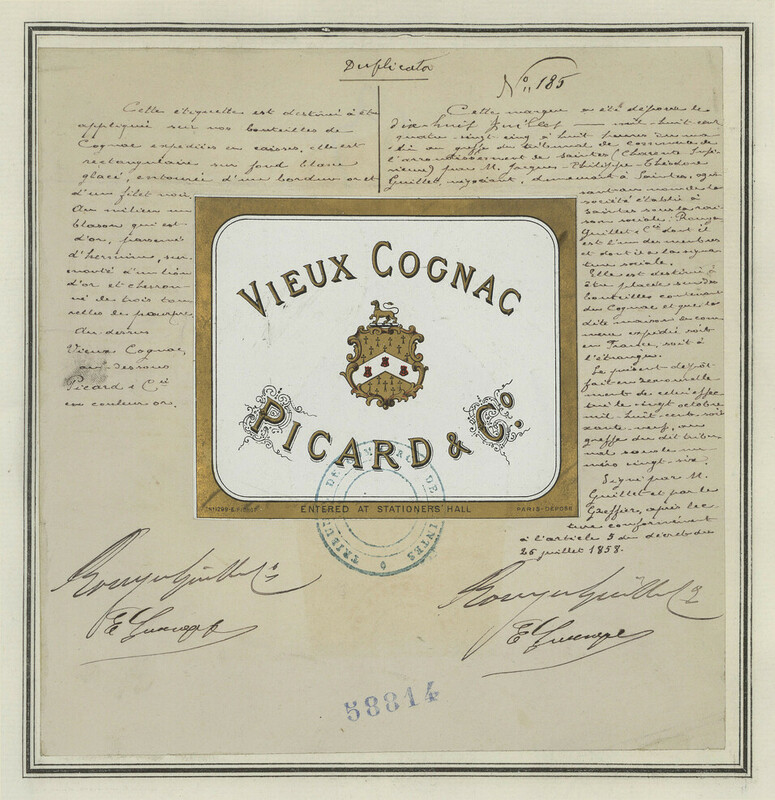 Duplicata
Nº 185
Cette étiquette est destinée à être
appliquée sur nos bouteilles de
Cognac expédiées en caisses, elle est
rectangulaire sur fond blanc
glacé, entourée d'une bordure or et
d'un filet noir.
Au milieu un
blason qui est
d'or, parsemé
d'hermine, sur
monté d'un lion
d'or et chevron
né de trois tou
relles de pourpre.
Au-dessus
Vieux Cognac,
au-dessous
Picard & Cie
en couleur or.
Cette marque a été déposée le
dix huit Juillet mil-huit-cent
quatre-vingt-cinq à huit heures du ma
tin au greffe du tribunal de commerce de
l'arrondissement de Saintes (Charente Infé
rieure) par M. Jacques Philippe Théodore
Guillet, négociant, demeurant à Saintes, agis
sant au nom de la
société établie à
Saintes sous la rai
son sociale: Rouyer
Guillet & Cie dont il
est l'un des membres
et dont il a la signa
ture sociale.
Elle est destinée à
être placée sur des
bouteilles contenant
du Cognac et que la
dite maison de com
merce expédie soit
en France, soit à
l'étranger.
Le présent dépôt
fait en renouvelle
ment de celui effec
tué le vingt octobre
mil-huit-cent-soix
ante-neuf, au
greffe du dit tribu
nal sous le nu
méro vingt-six.
Signé par M.
Guillet et par le
Greffier, après lec
ture conformément
à l'article 5 du décret du
26 juillet 1858.
VIEUX COGNAC
PICARD & Cº.
ENTERED AT STATIONERS' HALL
PARIS-DÉPOSÉ
Rouyer Guillet & Cie
Rouyer Guillet & Cie
58814